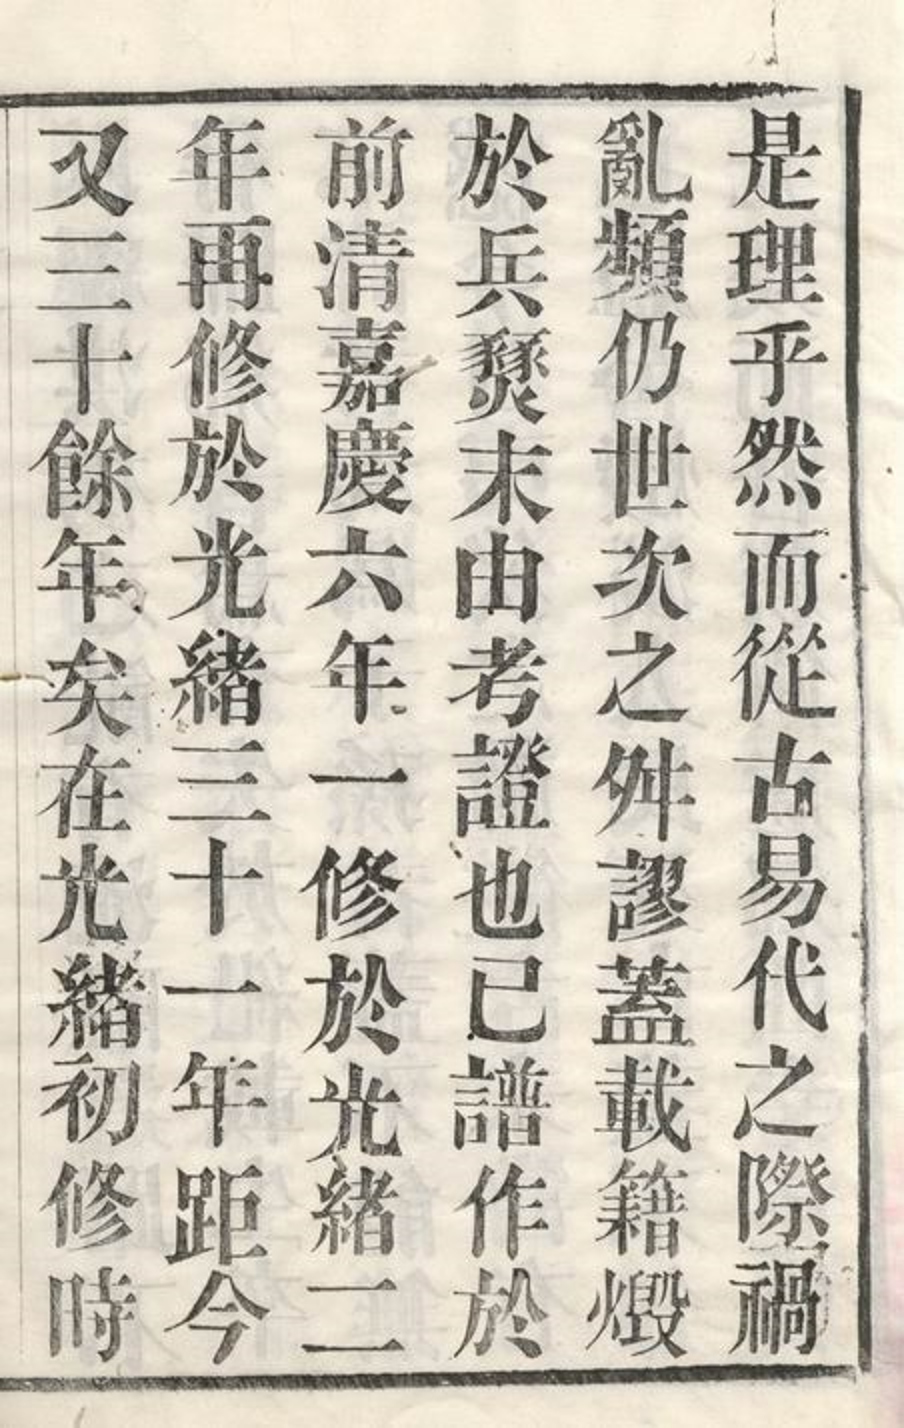 是理乎然而從古易代之際禍
亂頻仍世次之舛謬蓋載籍燬
於兵燹末由考證也已譜作於
前清嘉慶六年一修於光緒二
年再修於光緒三十一年距今
又三十餘年矣在光緒初修時